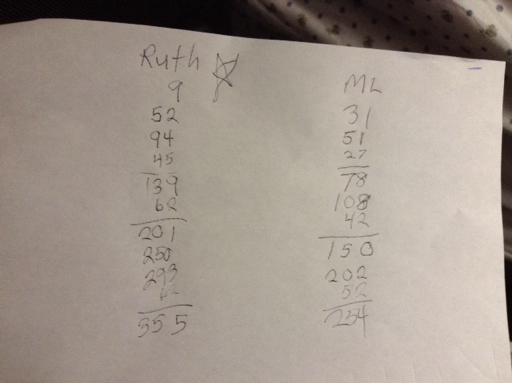 Ruth
9
52
94
45
139
62
201
250
293
355
ML
31
51
27
78
108
42
150
202
52
254